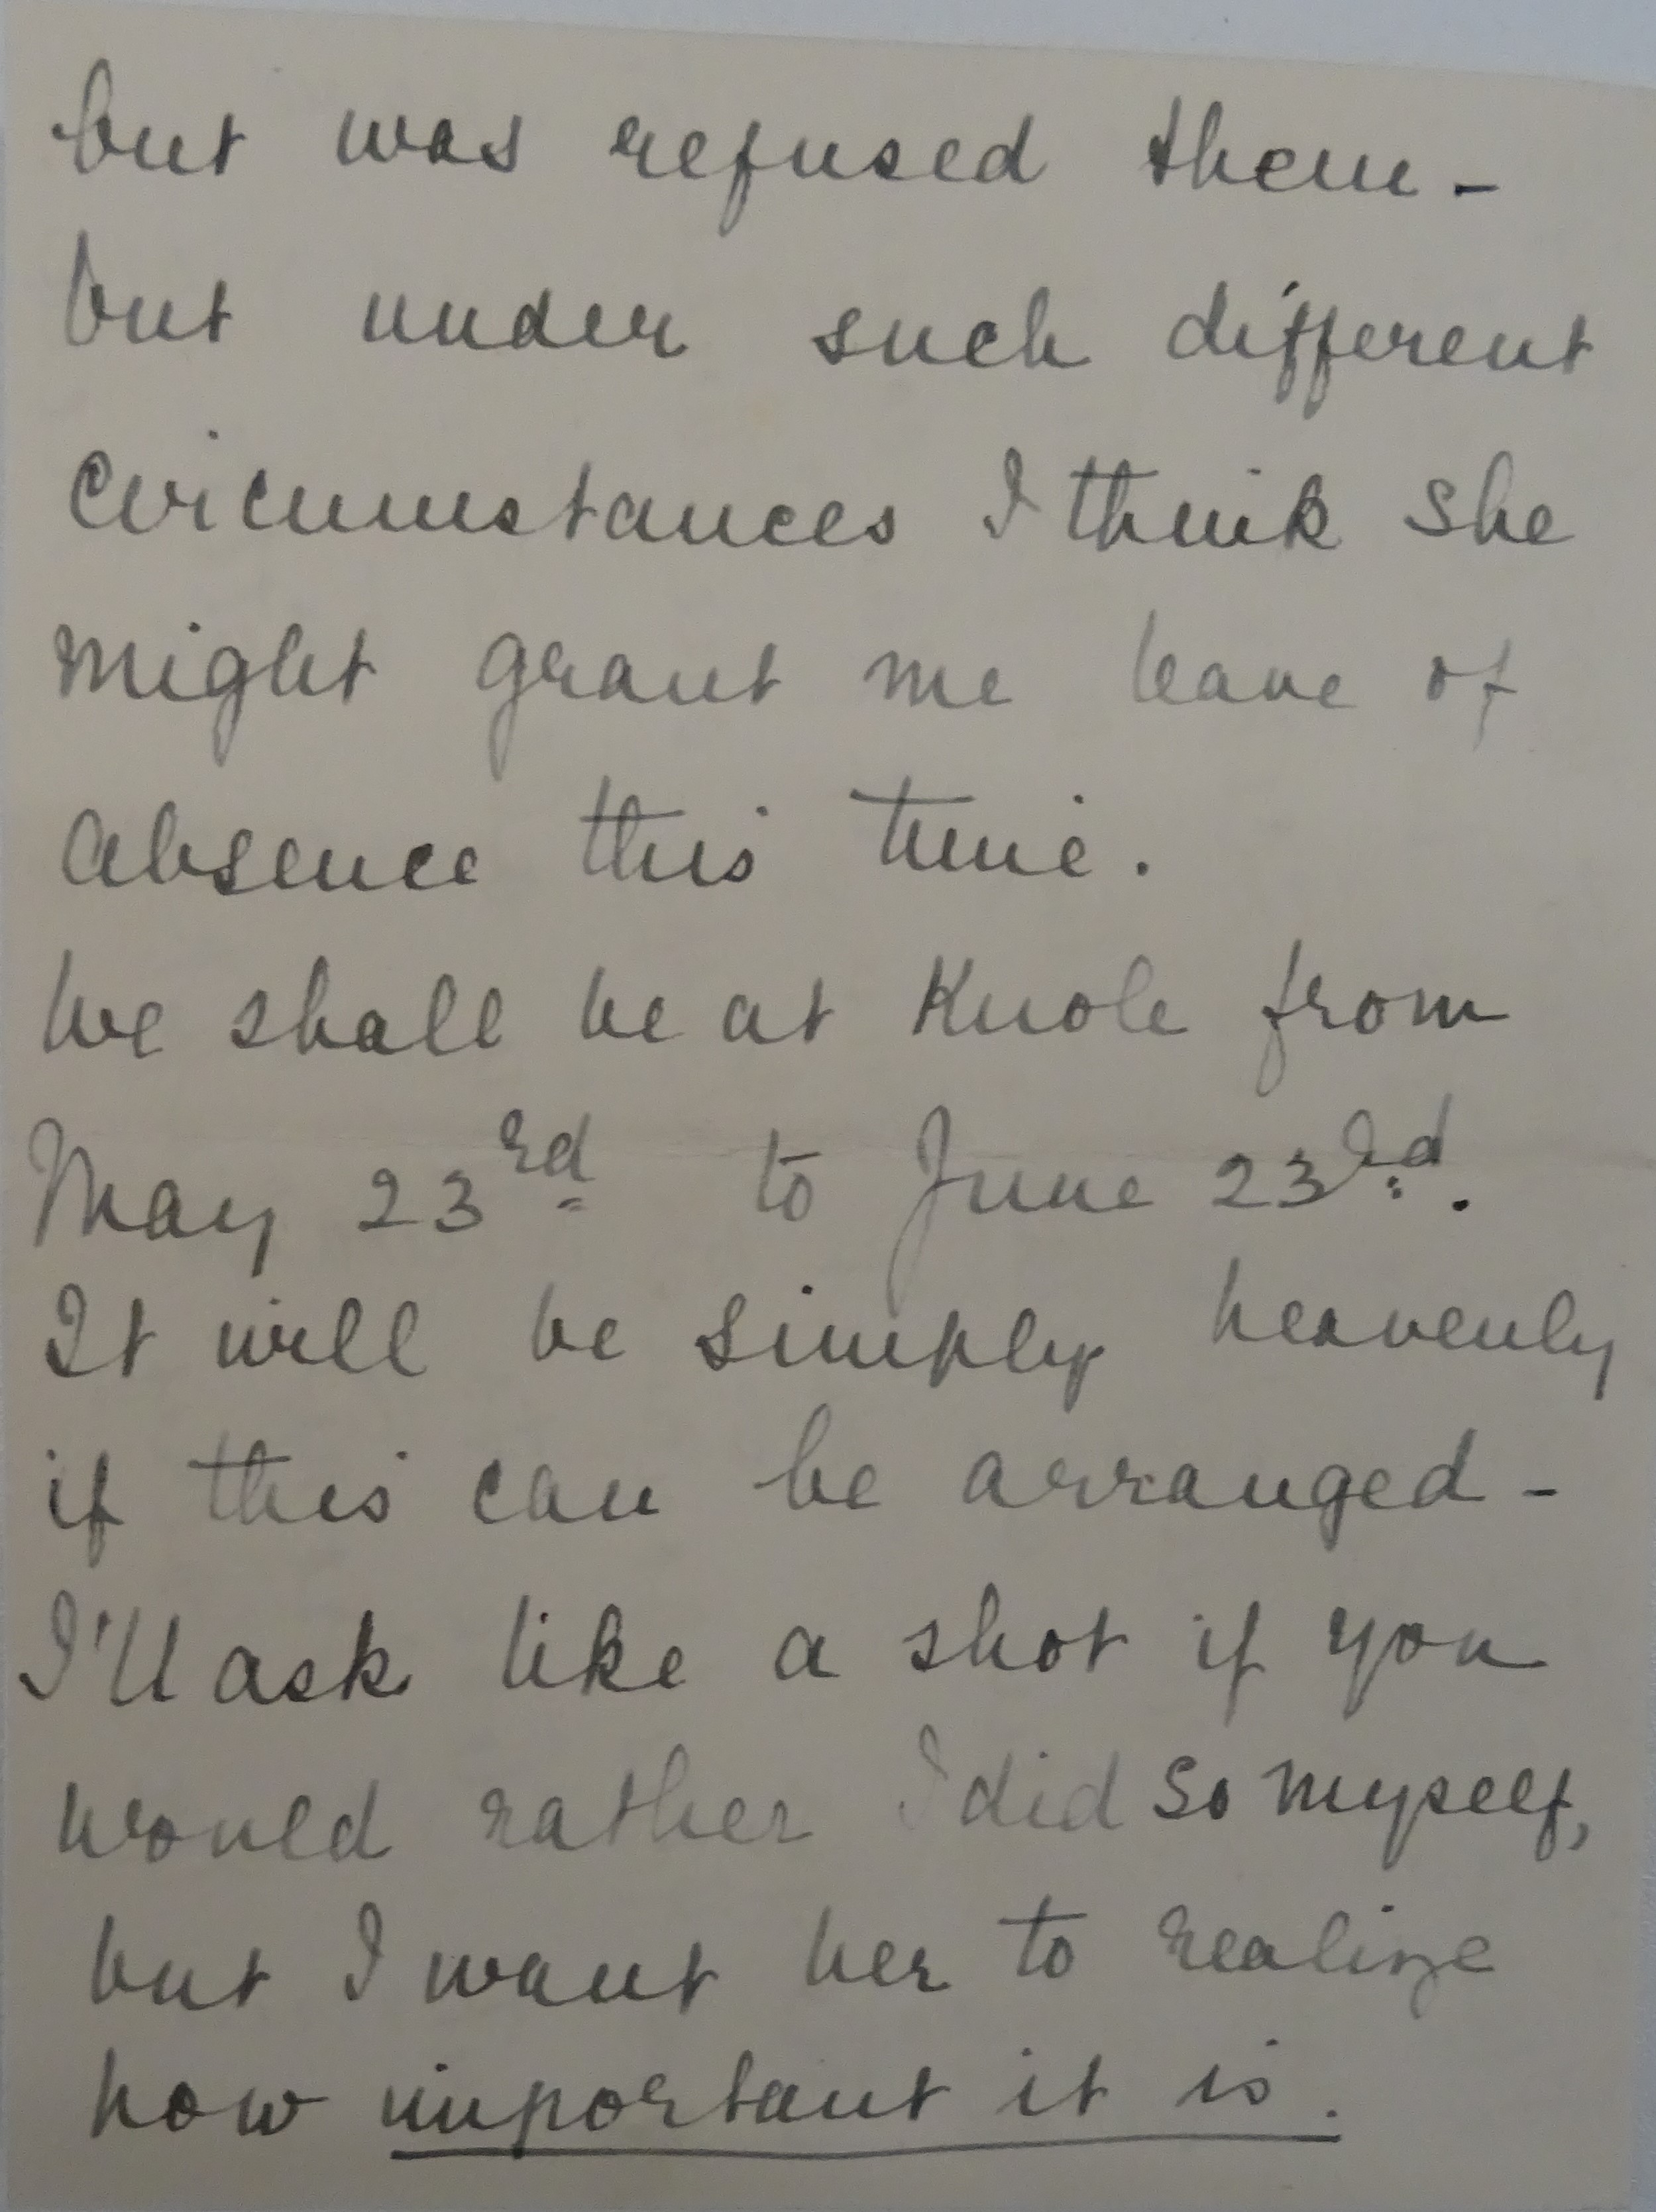 but was refused them -
but under such different
circumstances I think she
might grant me leave of
absence this time.
We shall be at Knole from
May 23rd to June 23rd.
It will be simply heavenly
if this can be arranged -
I'll ask like a shot if you
would rather I did so myself,
but I want her to realize
how important it is.